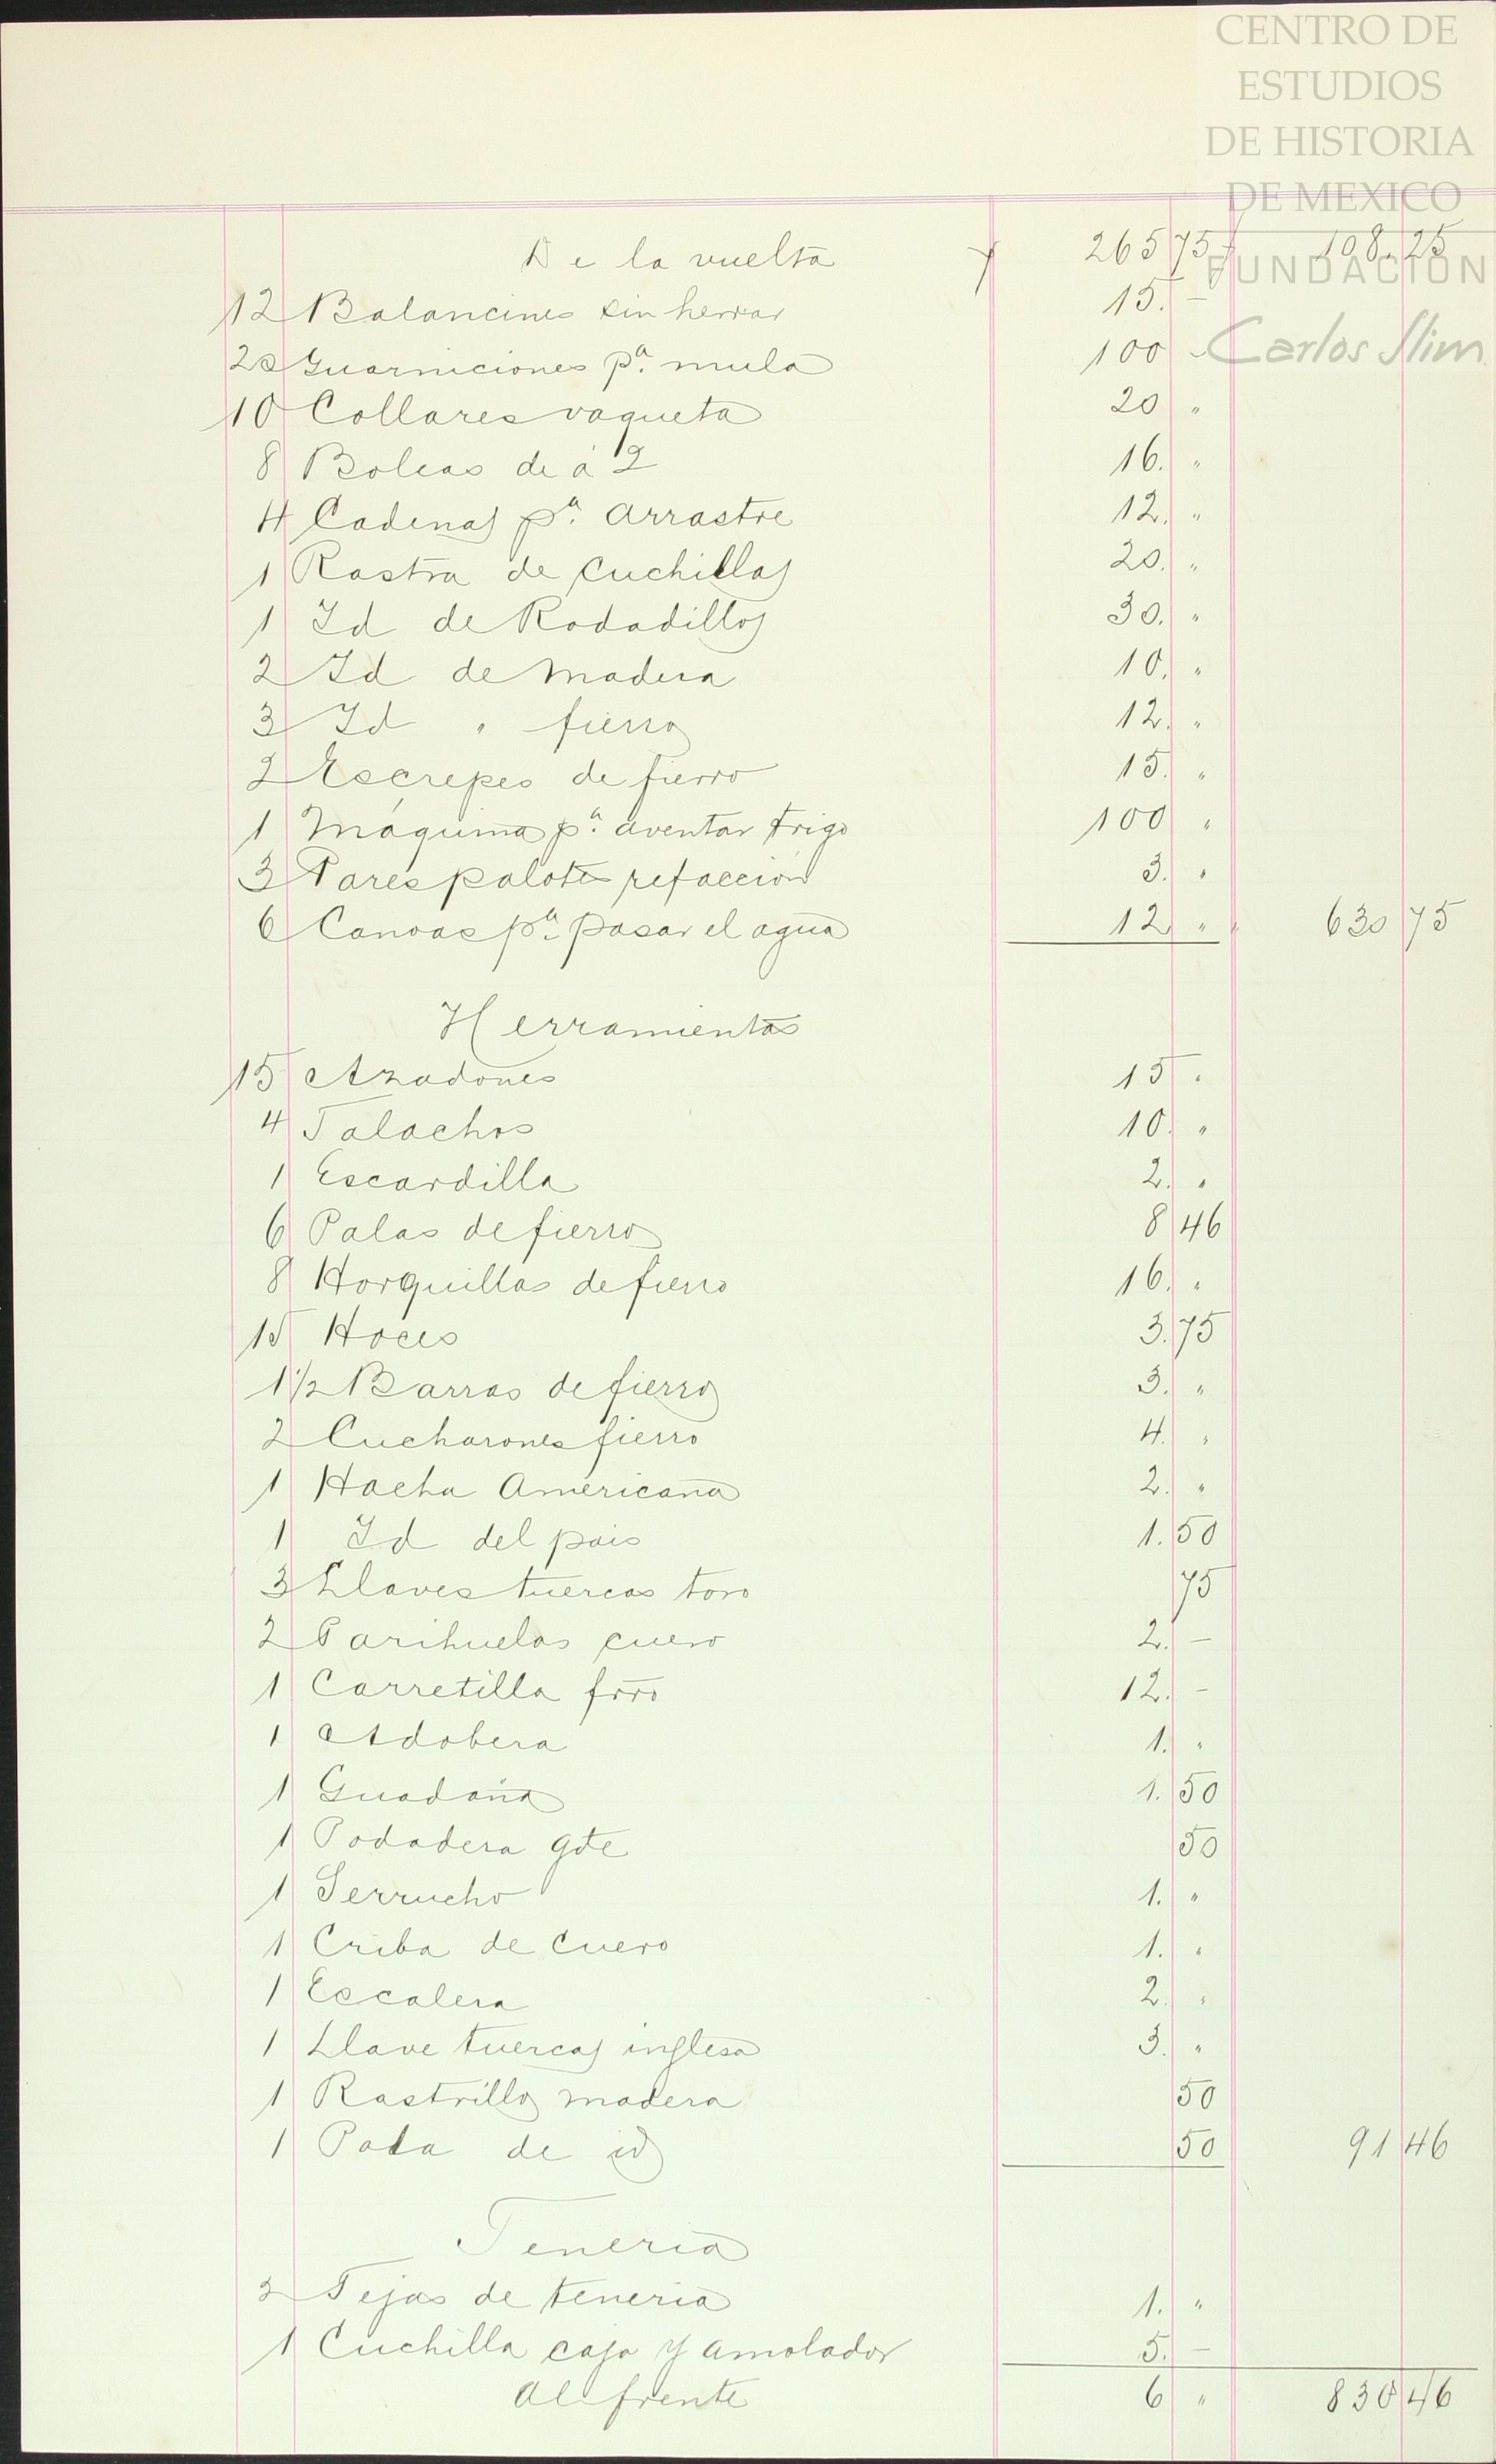 CENTRO DE
ESTUDIOS
DE HISTORIA
DE MEXICO
FUNDACIÓN
Carlos Slim
De la vuelta 265 75 108. 25
12 Balancines sin herrar 15. -
20 Guarniciones pª. mula 100 -
10 Collares vaqueta 20 "
8 Boleas de á 2 16. "
4 Cadenas pª. arrastre 12. "
1 Rastra de cuchillas 20. "
1 Id de Rodadillos 30. "
2 Id de madera 10. "
3 Id " fierro 12. "
2 Escrepes de fierro 15. "
1 Máquina pª. aventar trigo 100 "
3 Pares palotes refacción 3. "
6 Canoas pª. pasar el agua 12 " 630 75
Herramientas
15 Azadones 15 "
4 Talachos 10. "
1 Escardilla 2. "
6 Palas de fierro 8 46
8 Horquillas de fierro 16. "
15 Hoces 3. 75
1 1/2 Barras de fierro 3. "
2 Cucharones fierro 4. "
1 Hacha Americana 2. "
1 Id del pais 1. 50
3 Llaves tuercas toro 75
2 Parihuelas cuero 2. -
1 Carretilla frro 12. -
1 Adobera 1. "
1 Guadaña 1. 50
1 Podadera gde 50
1 Serrucho 1. "
1 Criba de cuero 1. "
1 Escalera 2. "
1 Llave tuercas inglesa 3. "
1 Rastrillo madera 50
1 Pala de id 50 91 46
Teneria
2 Tejas de teneria 1. "
1 Cuchilla caja y amolador 5. -
Al frente 6 " 830 46